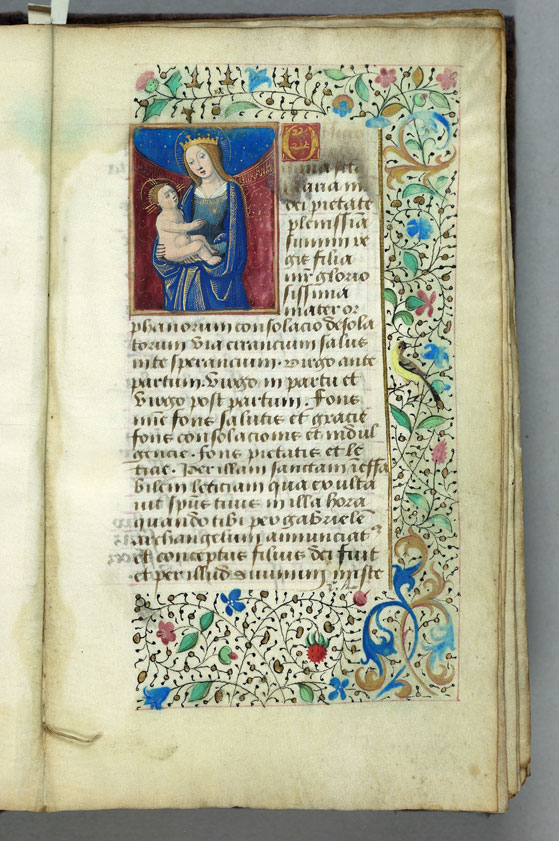 O
maria
dei pietate
plenissia
summi re
gis filia
mr̄ glorio
sissima
mater or
phanorum consolacio desola
torum via errancium salus
in te sperancium. Virgo ante
partum. Virgo in partu et
virgo post partum. Fons
mīe fons salutis et gracie
fons consolacionis et indul
gencie. fons pietatis et le
ticie. Per illam sanctam ineffa
bilem leticiam qua exulta
uit spūs tuus in illa hora
quando tibi per gabrielē
archangelum annunciatꝰ
et conceptus filius dei fuit
et per illud diuinum miste